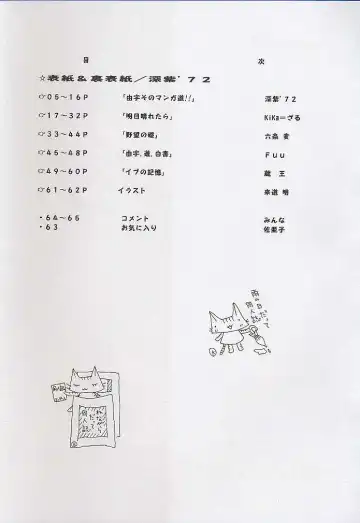 目 次
☆表紙&裏表紙/深紫'72
☞05~16P 「由宇そのマンガ道!!」 深紫'72
☞17~32P 「明日晴れたら」 KiKa=ざる
☞33~44P 「野望の郷」 六条 麦
☞45~48P 「由宇、道、白書」 Fuu
☞49~60P 「イブの記憶」 蔵 王
☞61~62P イラスト 来道 明
・64~65 コメント みんな
・63 お気に入り 佐果子
雨の日だって
同人誌
同人誌